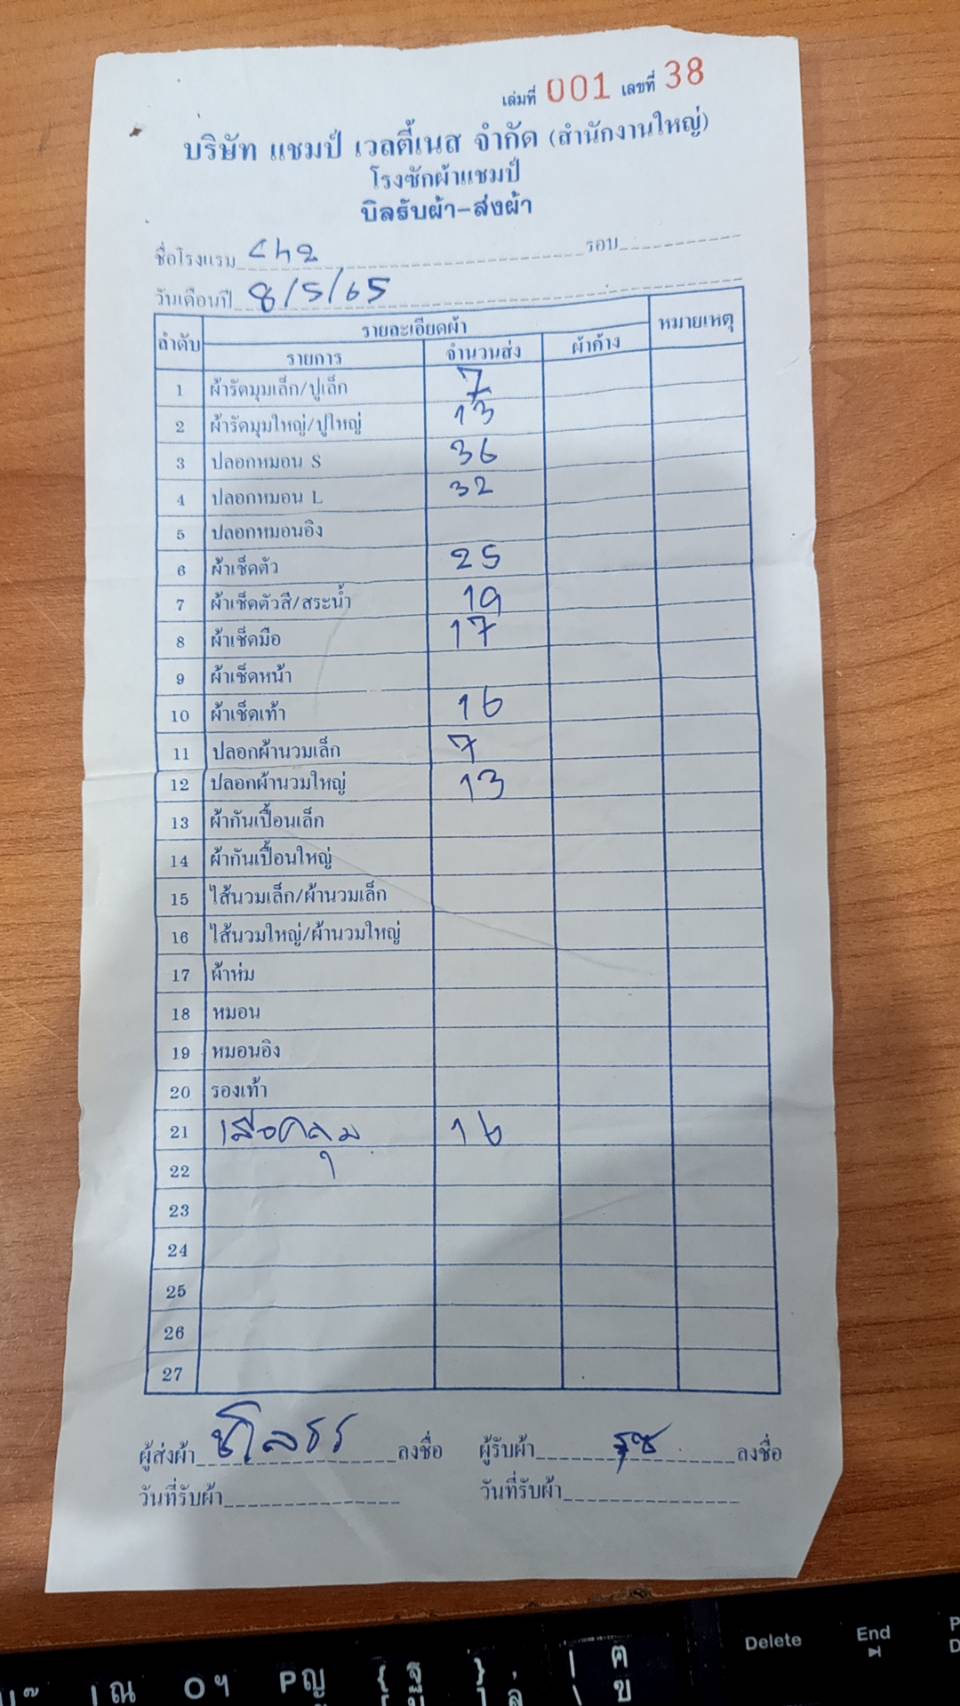 เล่มที่ 001 เลขที่ 38
บริษัท แชมป์ เวลตี้เนส จำกัด (สำนักงานใหญ่)
โรงซักผ้าแชมป์
บิลรับผ้า-ส่งผ้า
ชื่อโรงแรม รอบ
วันเดือนปี 8/5/65
ลำดับ รายละเอียดผ้า หมายเหตุ
รายการ จำนวนส่ง ผ้าค้าง
1 ผ้ารัดมุมเล็ก/ปูเล็ก 7
2 ผ้ารัดมุมใหญ่/ปูใหญ่ 13
3 ปลอกหมอน S 36
4 ปลอกหมอน L 32
5 ปลอกหมอนอิง
6 ผ้าเช็ดตัว 25
7 ผ้าเช็ดตัวสี/สระน้ำ 19
8 ผ้าเช็ดมือ 17
9 ผ้าเช็ดหน้า
10 ผ้าเช็ดเท้า 16
11 ปลอกผ้านวมเล็ก 7
12 ปลอกผ้านวมใหญ่ 13
13 ผ้ากันเปื้อนเล็ก
14 ผ้ากันเปื้อนใหญ่
15 ไส้นวมเล็ก/ผ้านวมเล็ก
16 ไส้นวมใหญ่/ผ้านวมใหญ่
17 ผ้าห่ม
18 หมอน
19 หมอนอิง
20 รองเท้า
21 เสื้อคลุม 16
22
23
24
25
26
27
ผู้ส่งผ้า ลงชื่อ ผู้รับผ้า ลงชื่อ
วันที่รับผ้า วันที่รับผ้า
Delete End